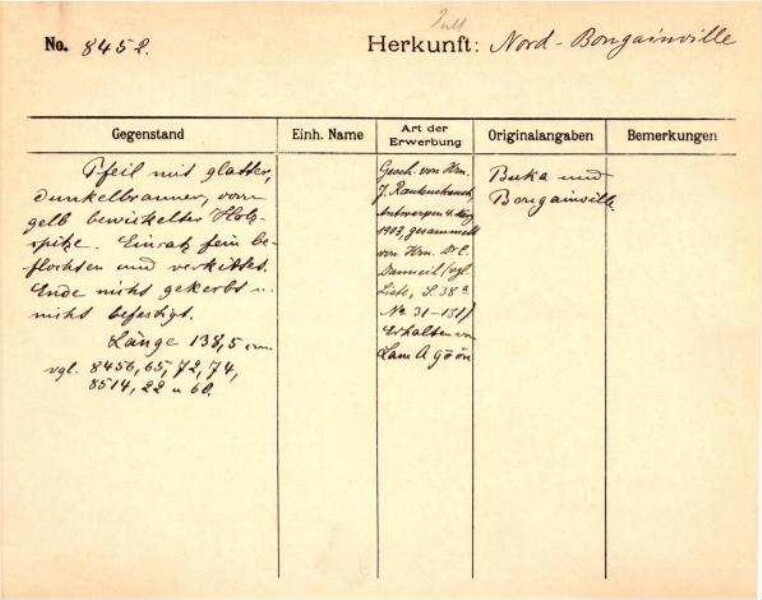 No. 8452.
Herkunft: Nord-Bougainville
Gegenstand
Einh. Name
Art der
Erwerbung
Originalangaben
Bemerkungen
Pfeil mit glatter,
dunkelbrauner, vorn
gelb bewickelter Holz-
spitze. Einsatz fein be-
flochten und verkittet.
Ende nicht gekerbt u.
nicht befestigt.
Länge 138,5 cm
vgl. 8456, 65, 72, 74,
8514, 22 u 60.
Gesch. von Hrn.
J. Rautenstrauch,
Antwerpen 4. März
1903, gesammelt
von Hrn. Dr C.
Danneil (vgl.
Liste, S. 38a
No 31-151)
Erhalten von
Buka und
Bougainville.